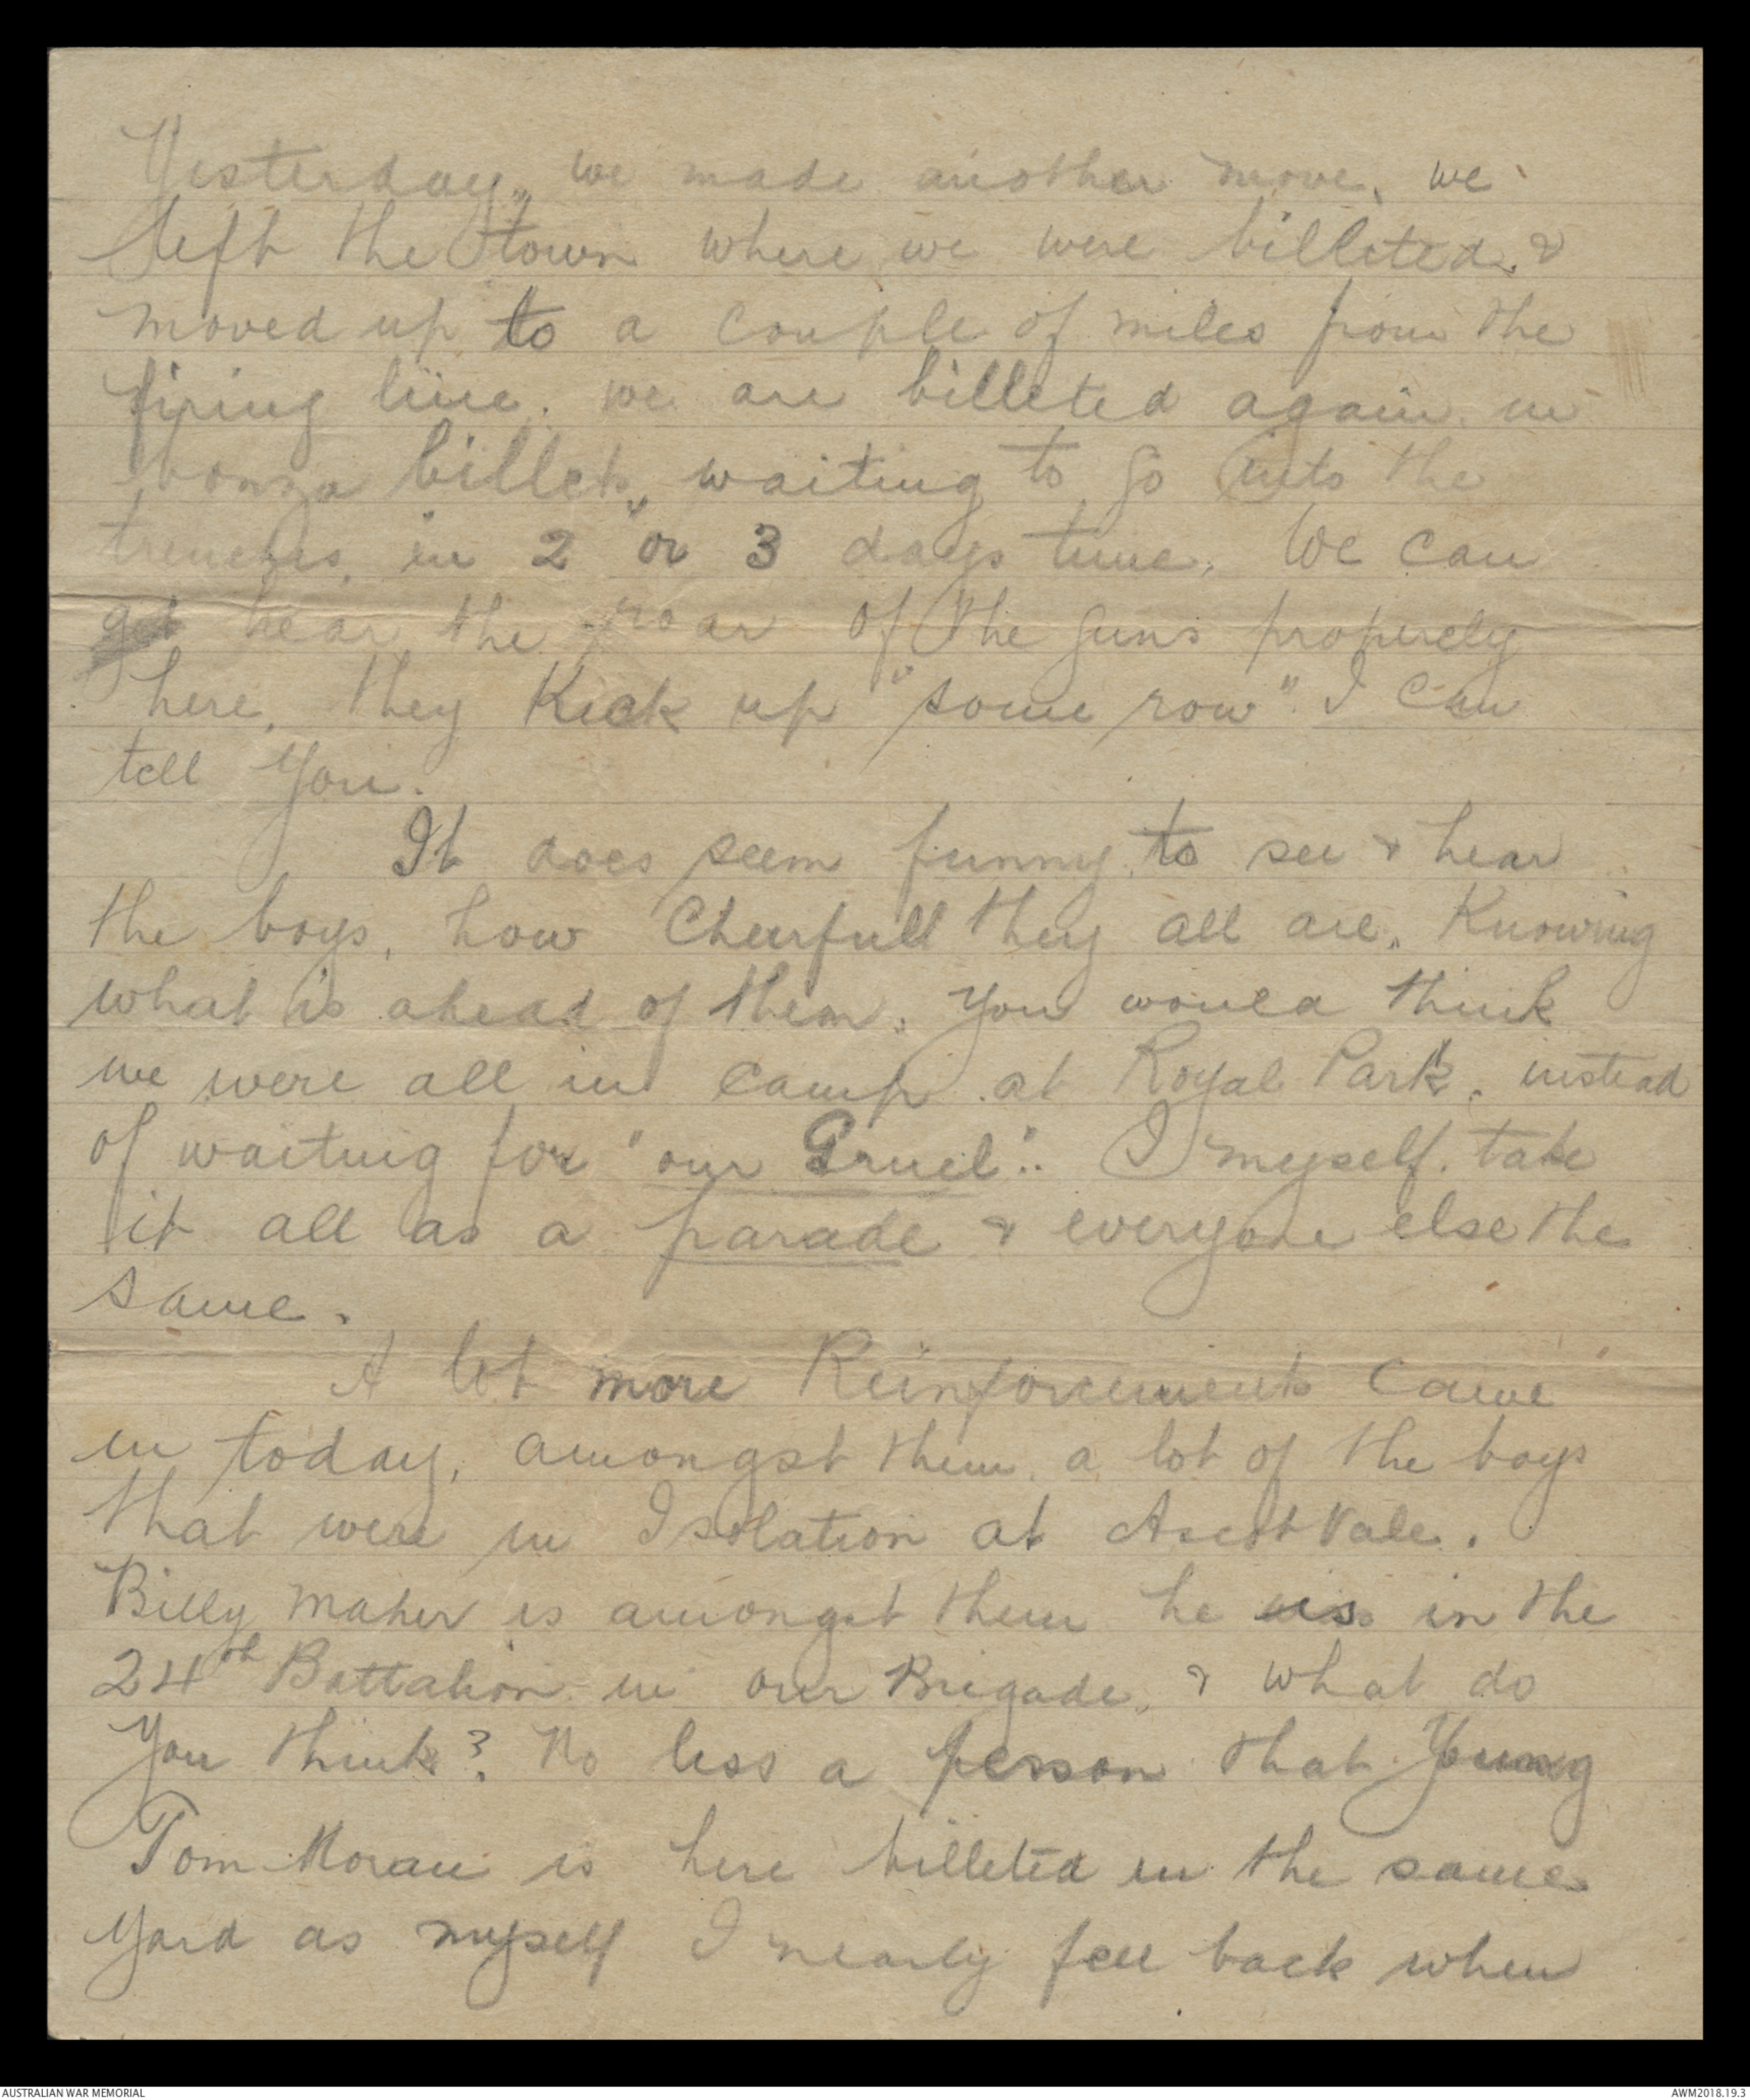 Yesterday, we made another move, we
left the town where we were billeted, &
moved up to a couple of miles from the
firing line. we are billeted again in
bonza billets, waiting to go into the
trenches, in 2 or 3 days time. We can
get hear the roar of the guns properely
here, they Kick up "some row" I can
tell you.
It does seem funny, to see & hear
the boys, how Cheerfull they all are, Knowing
what is ahead of them. You would think
we were all in camp at Royal Park, instead
of waiting for "our Gruel". I myself. take
it all as a parade & everyone else the
same.
A lot more Reinforcements came
in today, amongst them a lot of the boys
that were in Isolation at Ascot Vale.
Billy Maher is amongst them he is in the
24th Battalion in our Brigade, & what do
you think? No less a person that Young
Tom Moran is here billeted in the same
yard as myself I nearly fell back when
AUSTRALIAN WAR MEMORIAL
AWM2018.19.3